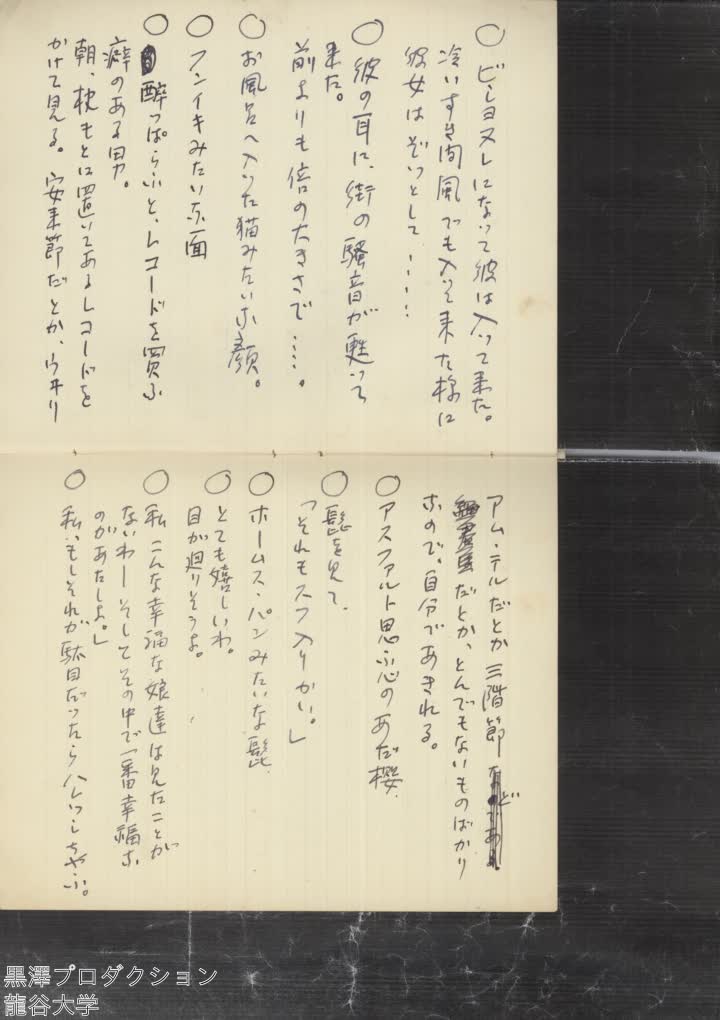 ○ ビショヌレになって彼は入って来た。
冷いすき間風でも入って来た様に
彼女はぞっとして・・・・
○ 彼の耳に、街の騒音が甦って
来た。
前よりも倍の大きさで・・・・。
○ お風呂へ入った猫みたいな顔。
○ フンイキみたいな面
○ 酔っぱらふと、レコードを買ふ
癖のある男。
朝、枕もとに置いてあるレコードを
かけて見る。安来節だとか、ウヰリ
アム・テルだとか三階節など
だとか、とんでもないものばかり
なので、自分であきれる。
○ アスファルト思ふ心のあだ櫻
○ 髭を見て、
「それもスフ入りかい。」
○ ホームス・パンみたいな髭
○ とても嬉しいわ。
目が廻りそうよ。
○ 私こんな幸福な娘達は見たことが
ないわーそしてその中で一番幸福な
のがあたしよ。」
○ 私、もしそれが駄目だったら しちゃふ。
黒澤プロダクション
龍谷大学